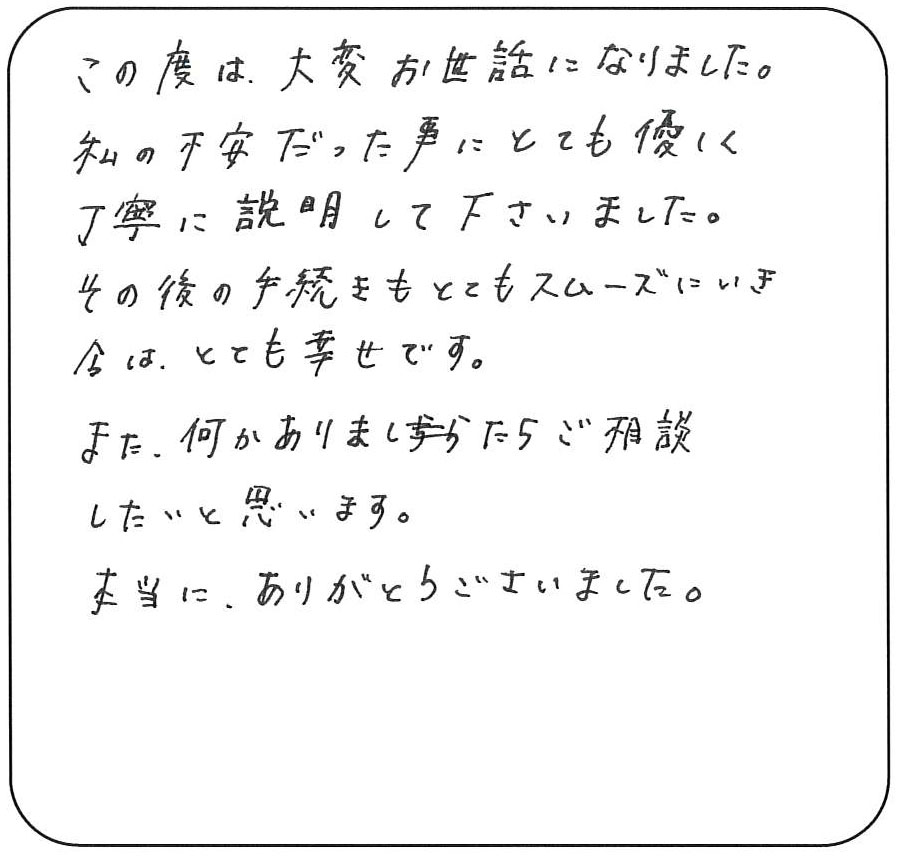 この度は、大変お世話になりました。
私の不安だった事にとても優しく
丁寧に説明して下さいました。
その後の手続きもとてもスムーズにいき
今は、とても幸せです。
また、何かありましたらご相談
したいと思います。
本当に、ありがとうございました。